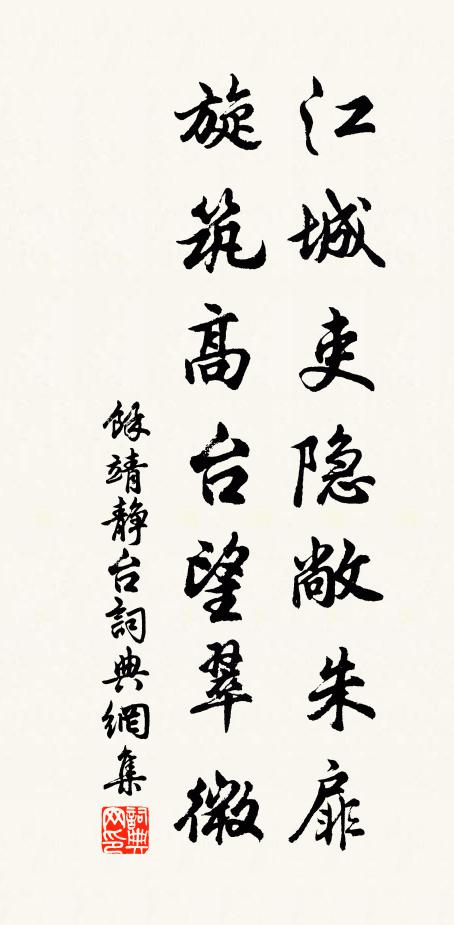 江城吏隐敞朱扉
旋筑高台望翠微
馀靖静台詞典網集
詞典网印